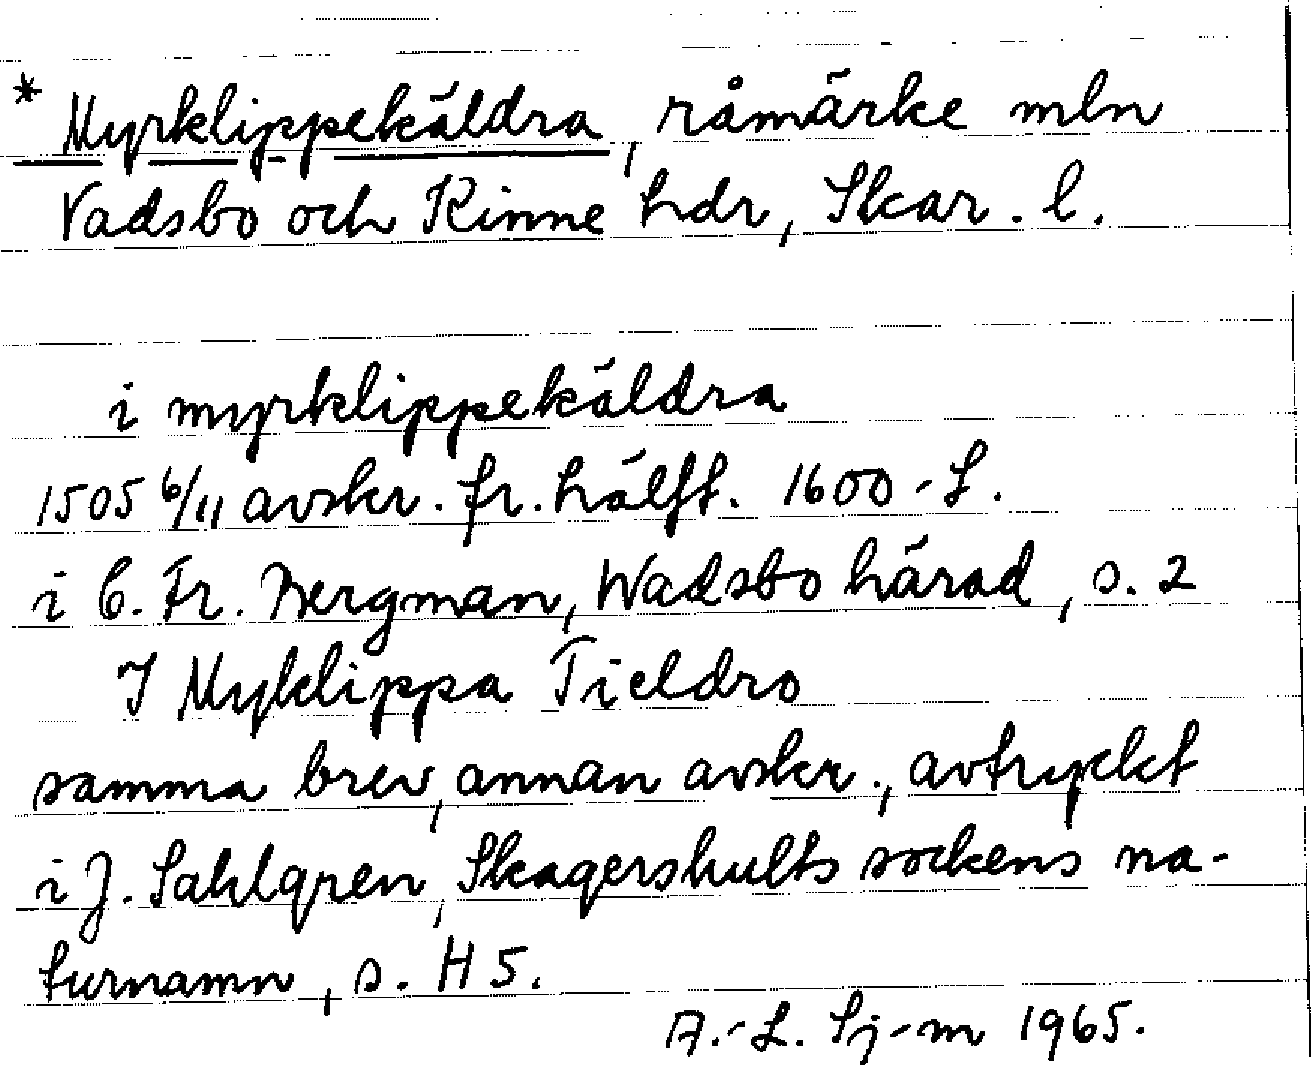 * Myrklippekäldra, råmärke mln
Vadsbo och Kinne hdr, Skar. l.
i myrklippekäldra
1505 6/11 avskr. fr. hälft. 1600-t.
i C. Fr. Bergman, Wadsbo härad, s. 2
I Myklippa Tieldro
samma brev, annan avskr., avtryckt
i J. Sahlgren, Skagershults sockens na-
turnamn, s. H 5.
A.-L. Sj-m 1965.